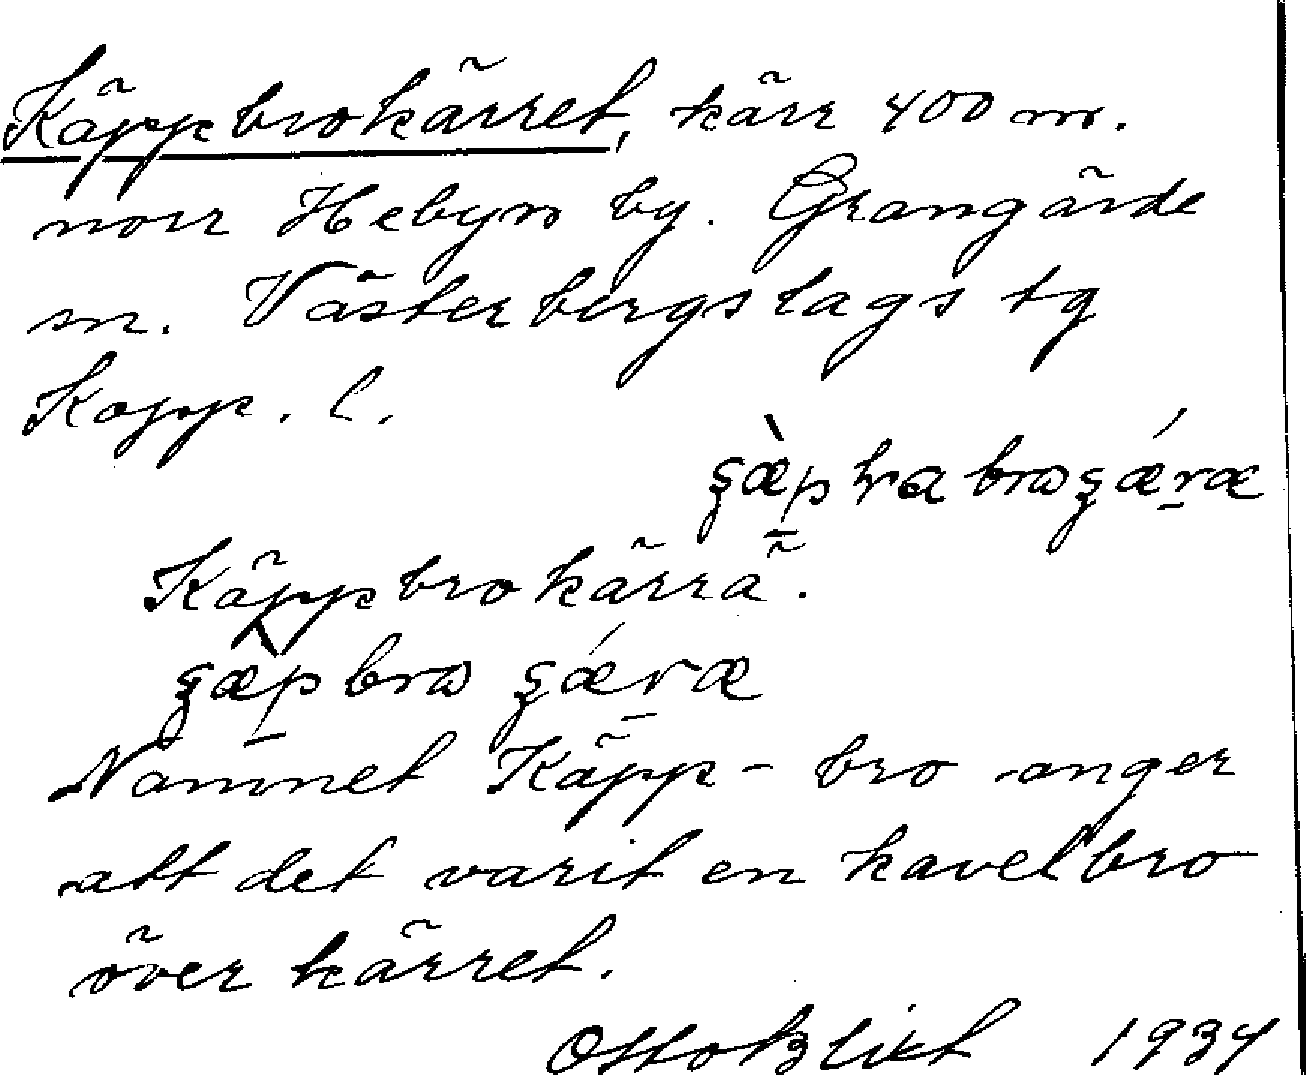 Käppbrokärret, kärr 400 m.
norr Hebyn by. Grangärde
sn. Västerbergslags tg
Kopp. l.
Käppbrokärrä.
Namnet Käpp- bro anger
att det varit en kavelbro
över kärret.
Otto Blixt 1934